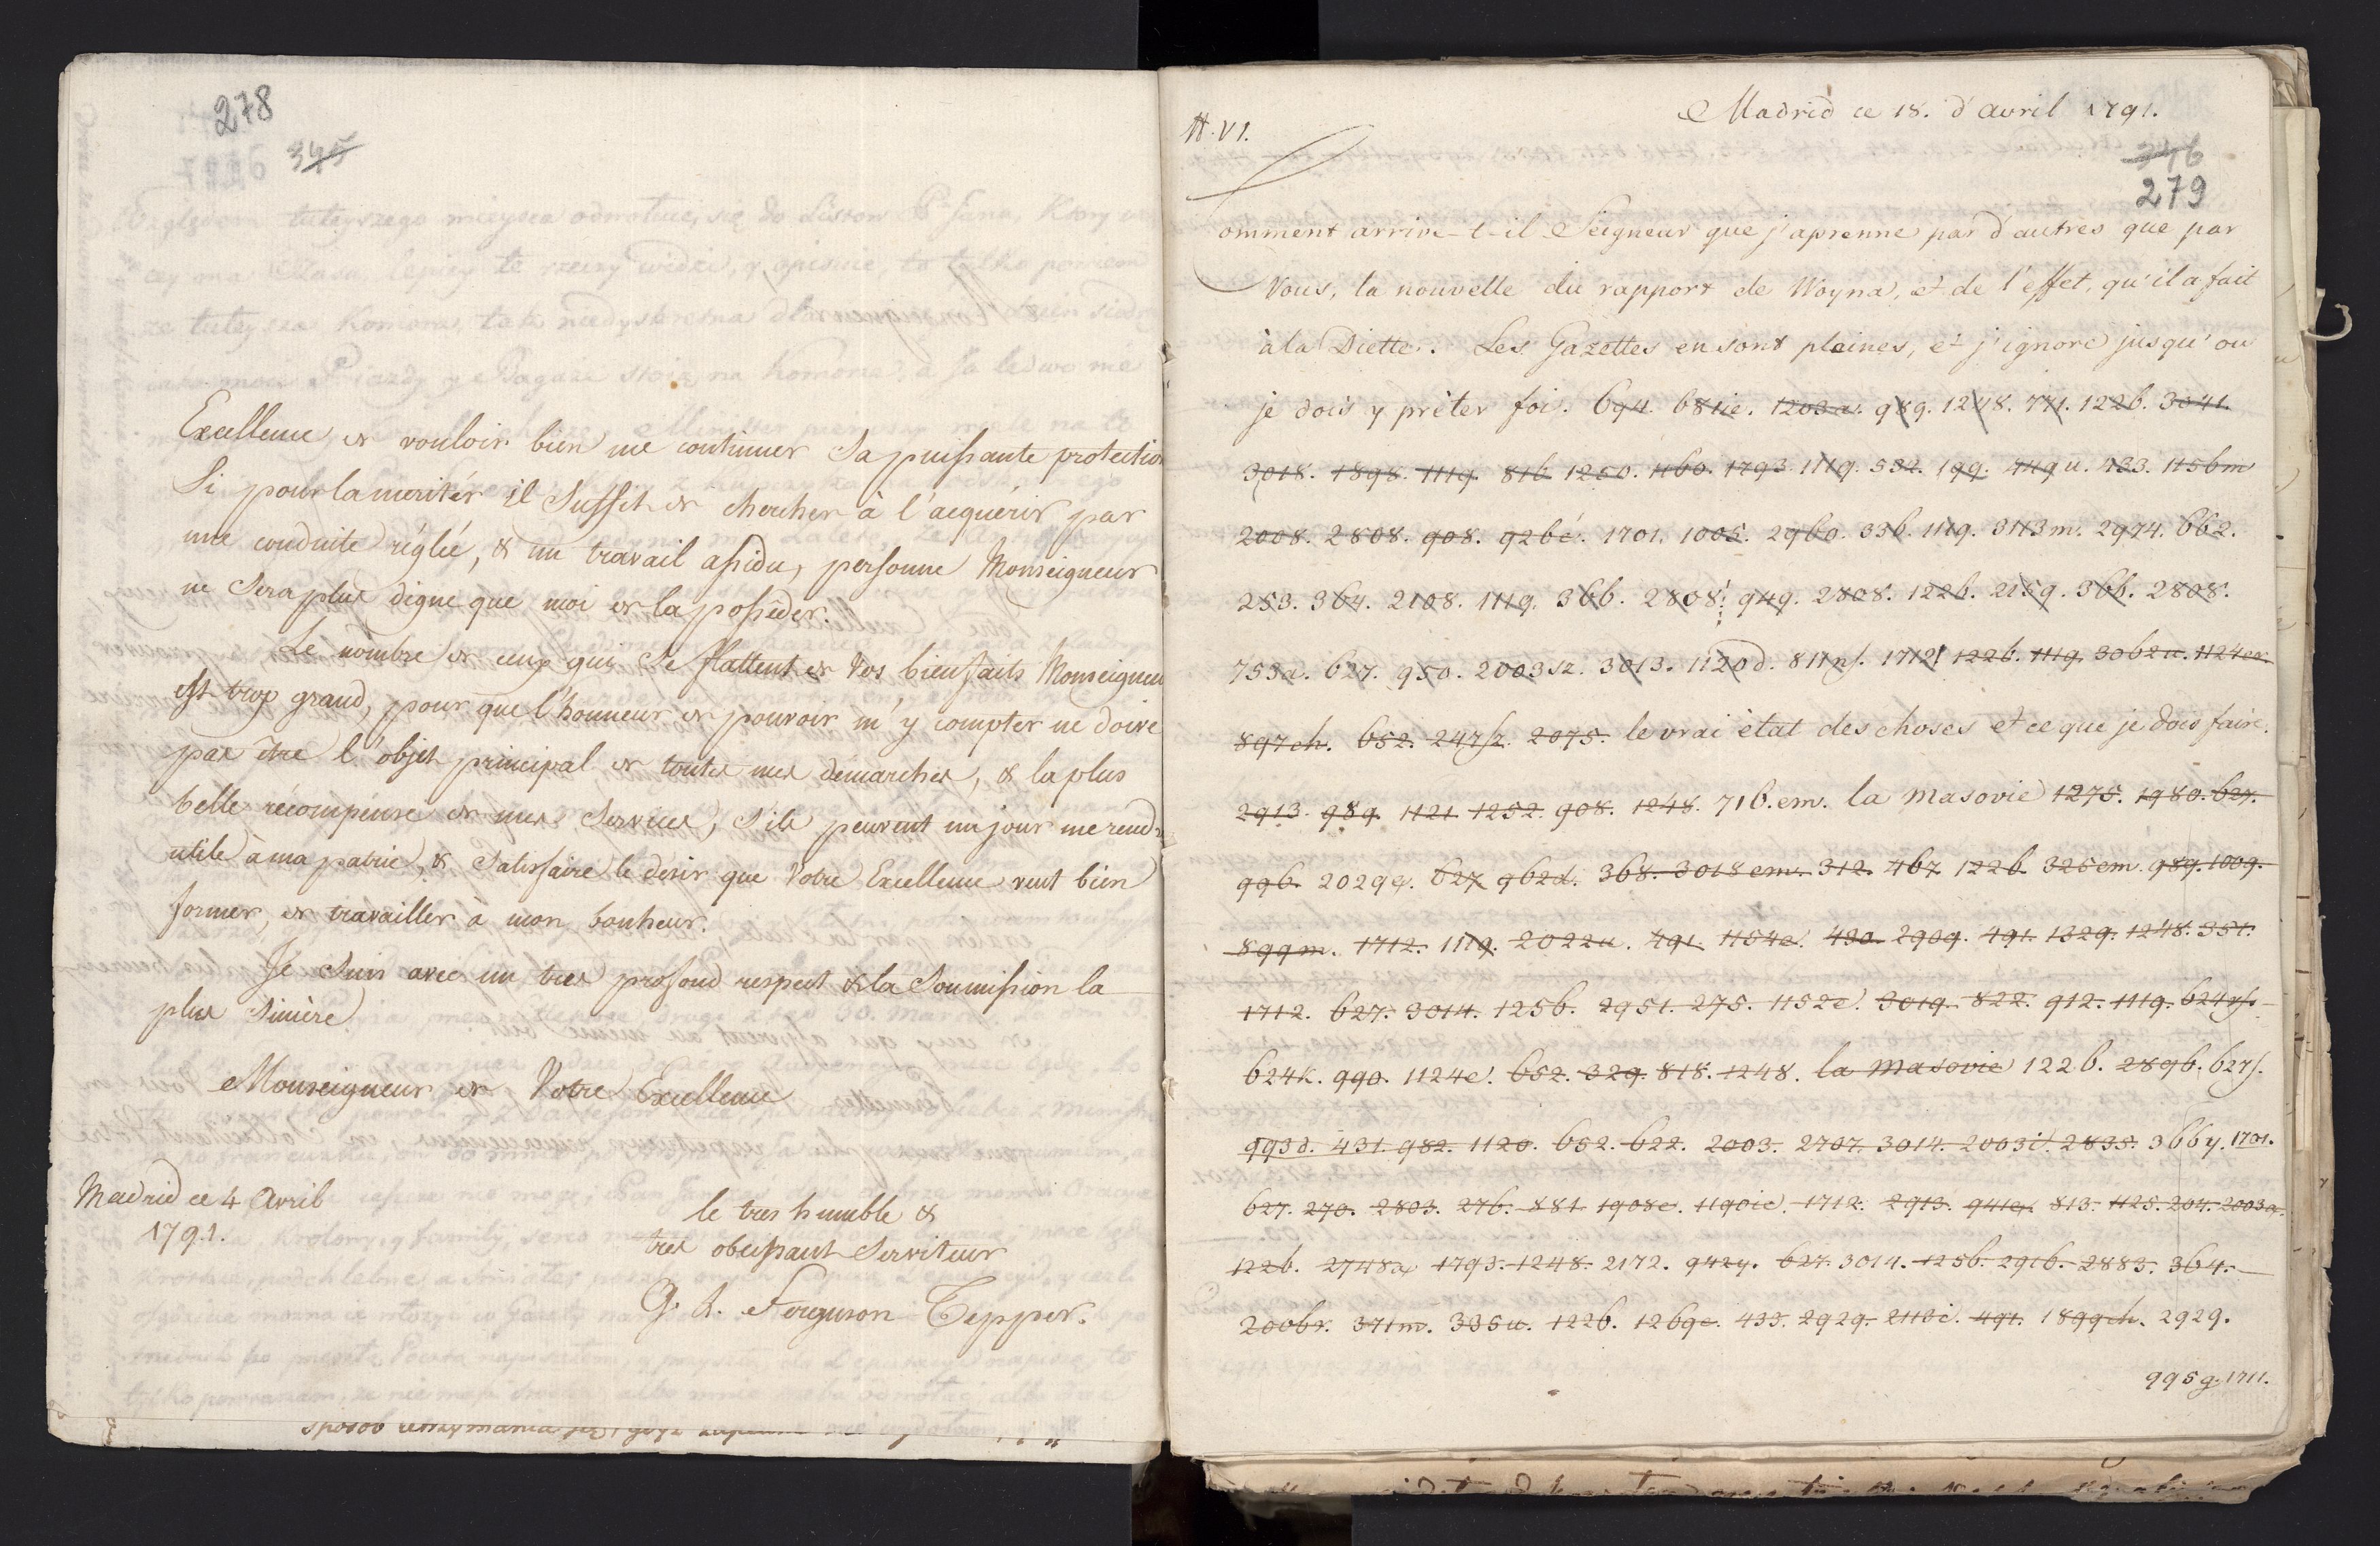 278
345
Excellence de vouloir bien me continuer Sa puissante protection
Si pour la meritér il Suffit de chercher à l'acquérir par
une conduite réglée, & un travail assidu, personne Monseigneur
ne Sera plus digne que moi de la posséder.
Le nombre de ceux qui Se flattent de Vos bienfaits Monseigneur
est trop grand, pour que l'honneur de pouvoir m'y compter ne doive
pas être l'objet principal de toutes mes demarches, & la plus
belle récompense de mes Services, S'ils peuvent un jour me rendre
utile à ma patrie, & Satisfaire le désir que Votre Excellence veut bien
former, de travailler à mon bonheur.
Je Suis avec un tres profond respect & la Soumission la
plus Sincère
Monseigneur de Votre Excellence
Madrid ce 4 Avril
1791.
le tres humble &
tres obeissant Serviteur
Ferguson Tepper.
N. VI.
Madrid ce 18. d'avril 1791.
346
279
Comment arrive-t-il Seigneur que j'aprenne par d'autres que par
Vous, la nouvelle du rapport de Woyna, et de l'effet, qu'il a fait
à la Diette. Les Gazettes en sont pleines, et j'ignore jusqu'ou
je dois y prêter foi. 694. 681ie. 1203a. 989. 1248. 771. 1226. 3041.
3018. 1898. 1119. 816. 1250. 1160. 1793. 1119. 532. 199. 4119u. 423. 1156m
2008. 2808. 908. 926é. 1701. 1005. 2960. 336. 1119. 3113m. 2974. 662.
253. 364. 2108. 1119. 366. 2808. 949. 2808. 1226. 2159. 366. 2808.
753a. 627. 950. 2003sz. 3013. 1120d. 811ns. 1712. 1226. 1119. 3062u. 1124er.
897ch. 652. 247sz. 2075. le vrai état des choses et ce que je dois faire.
2913. 989. 1121. 1252. 908. 1248. 716.em. la masovie 1275. 1980. 627.
996. 2029q. 627. 962d. 368. 3018em. 312. 467. 1226. 325em. 989. 1009.
899m. 1712. 1119. 2022u. 491. 1154e. 430. 2909. 491. 1329. 1248. 351.
1712. 627. 3014. 1256. 2951. 275. 1152e. 3019. 822. 912. 1119. 624ns.
624k. 990. 1124e. 652. 329. 818. 1248. la masovie 1226. 2896. 627s.
993d. 431. 982. 1120. 652. 622. 2003. 2707. 3014. 2003i. 2835. 366y. 1701.
627. 270. 2803. 276. 881. 1908e. 1190ie. 1712. 2913. 941ex. 813. 1125. 204. 2003a.
1226. 2748a. 1793. 1248. 2172. 942y. 627. 3014. 1256. 2916. 2883. 364.
2006r. 371m. 335u. 1226. 1269e. 433. 2929. 2110i. 491. 1899ch. 2929.
995g. 1711.